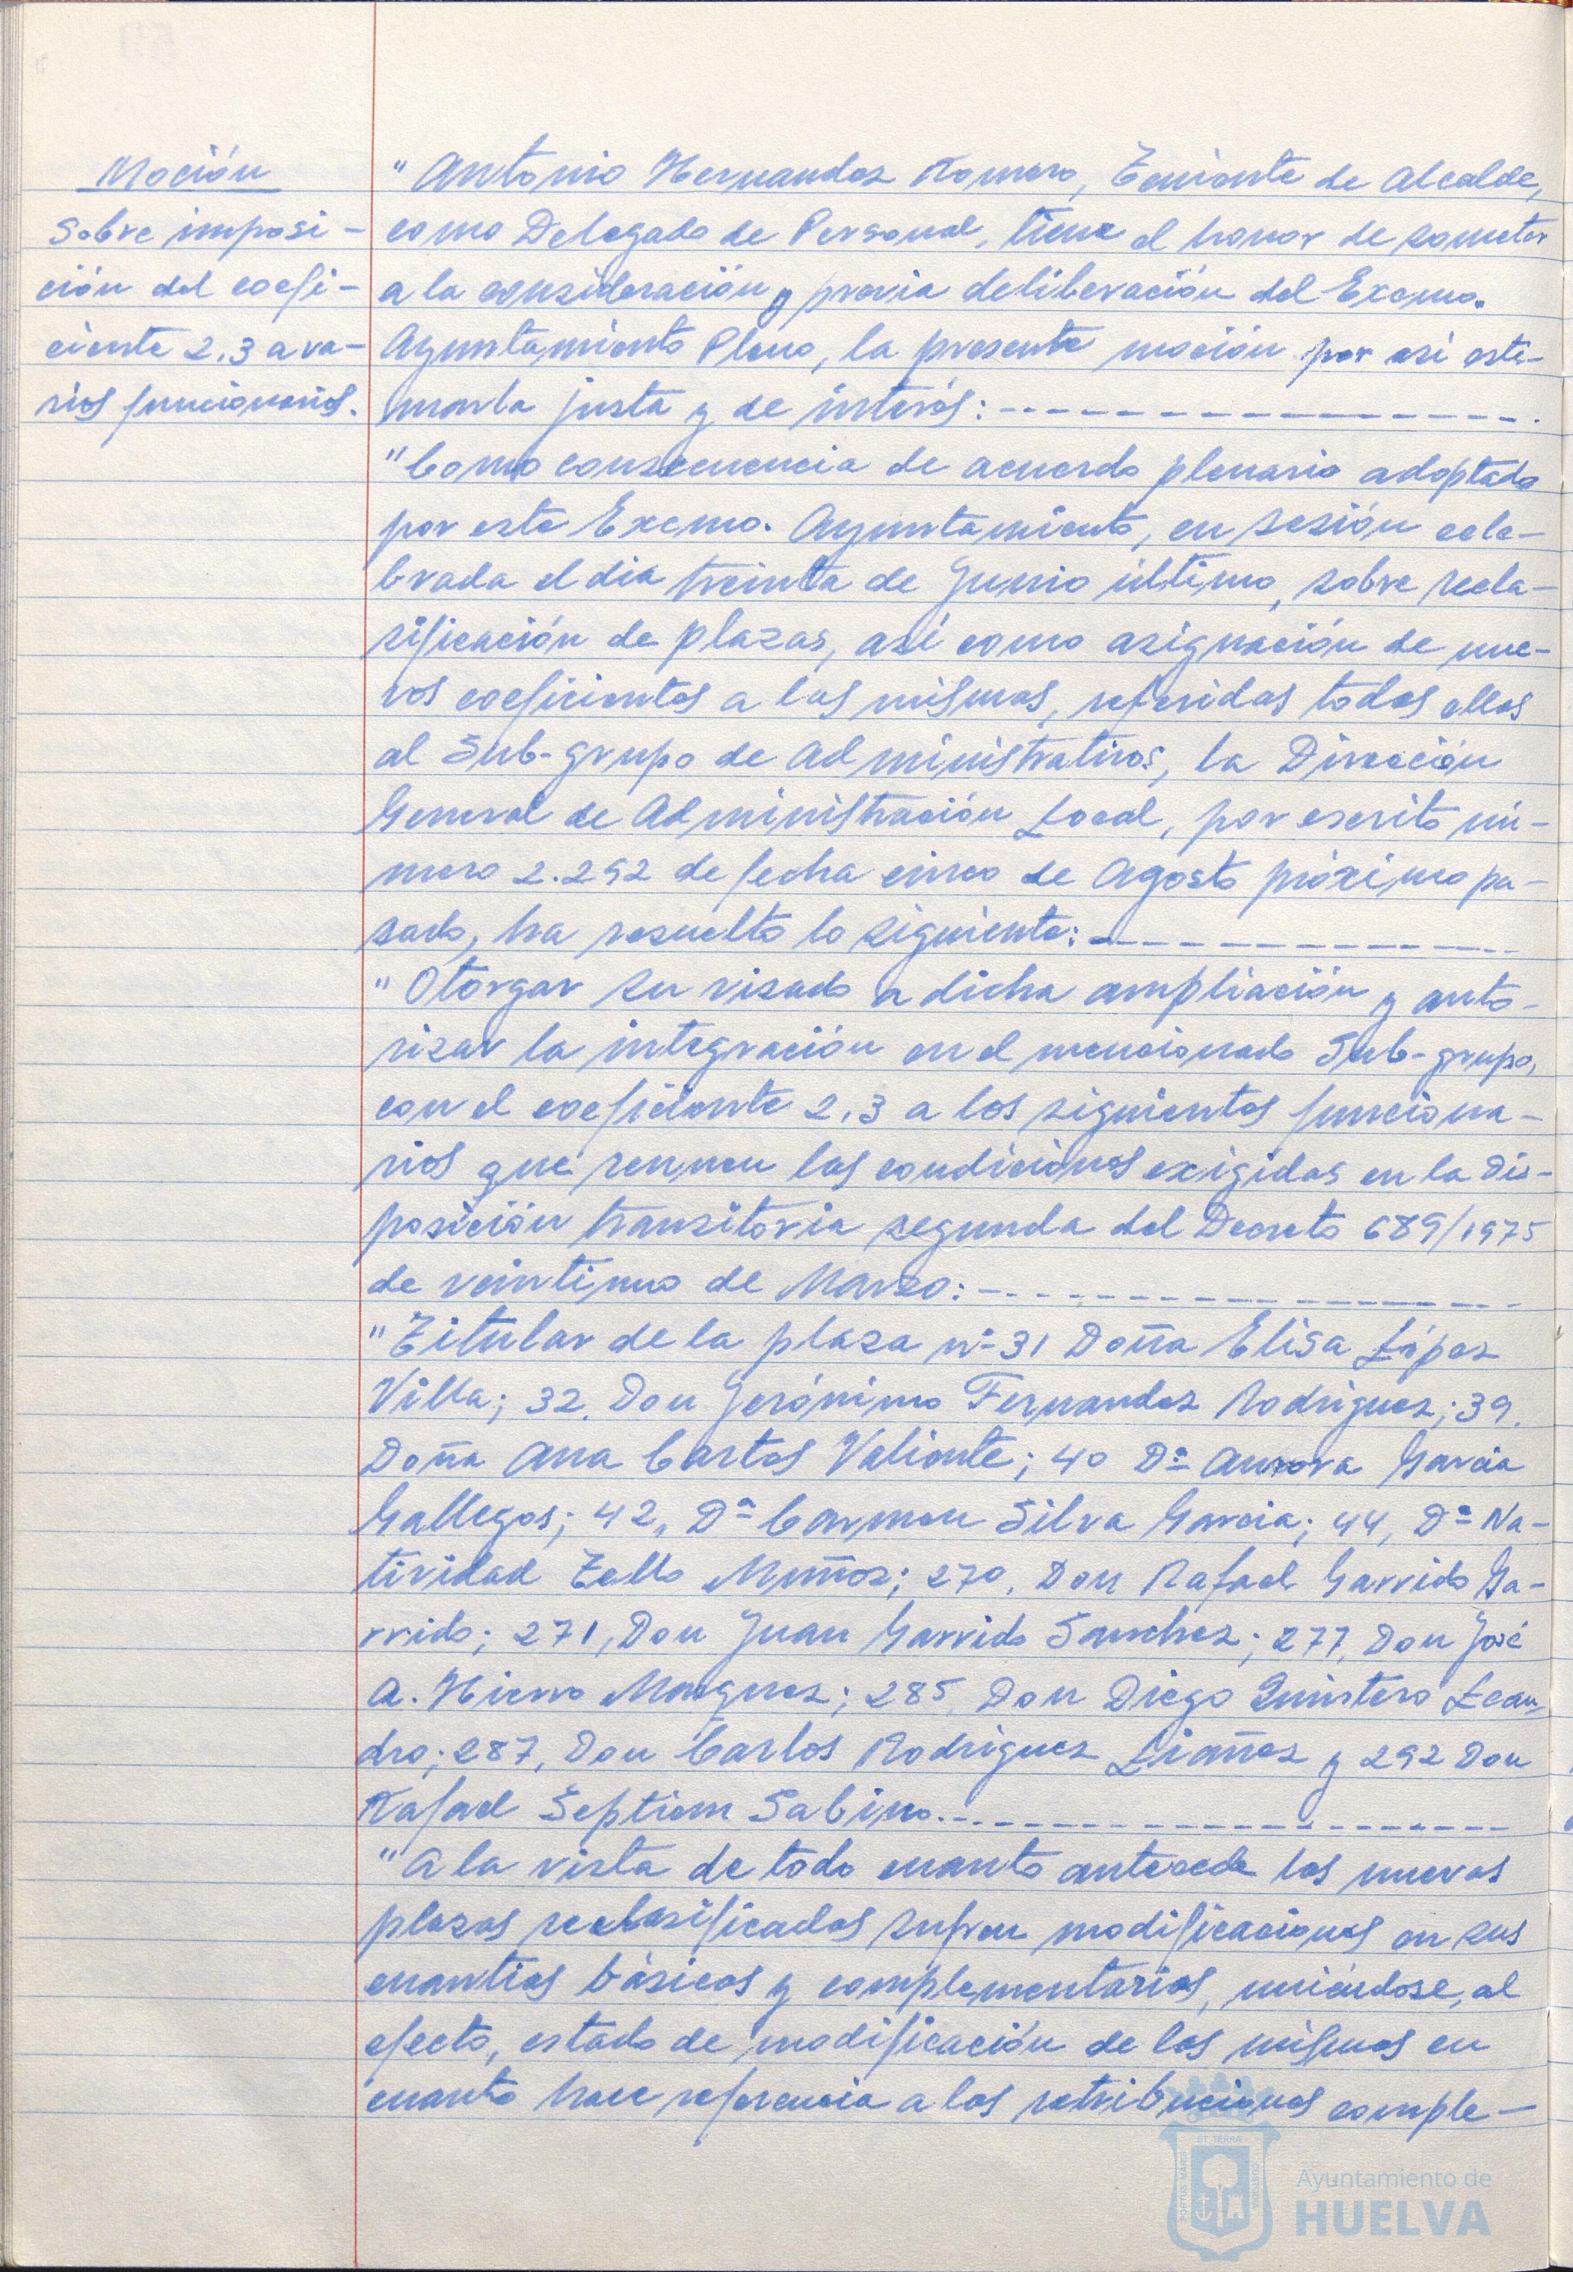 Moción
sobre imposi-
ción del coefi-
ciente 2,3 a va-
rios funcionarios.
"Antonio Hernandez Romero, Teniente de Alcalde,
como Delegado de Personal, tiene el honor de someter
a la consideración y previa deliberación del Excmo.
Ayuntamiento Pleno, la presente moción por asi esti-
marla justa y de interés:
"Como consecuencia de acuerdo plenario adoptado
por este Excmo. Ayuntamiento, en sesión cele-
brada el dia treinta de Junio último, sobre recla-
sificación de plazas, asi como asignación de nue-
vos coeficientes a las mismas, referidas todas ellas
al Sub-grupo de Administrativos, la Dirección
General de Administración Local, por escrito nú-
mero 2.292 de fecha cinco de Agosto próximo pa-
sado, ha resuelto lo siguiente:
"Otorgar su visado a dicha ampliación y auto-
rizar la integración en el mencionado Sub-grupo,
con el coeficiente 2,3 a los siguientes funciona-
rios que reunen las condiciones exigidas en la dis-
posición transitoria segunda del Decreto 689/1975
de veintiuno de Marzo:
"Titular de la plaza nº 31 Doña Elisa López
Villa; 32, Don Jerónimo Fernandez Rodriguez; 39,
Doña Ana Cartes Valiente; 40 Dª Aurora Garcia
Gallegos; 42, Dª Carmen Silva Garcia; 44, Dª Na-
tividad Tello Muñoz; 270, Don Rafael Garrido Ga-
rrido; 271, Don Juan Garrido Sanchez; 277, Don José
A. Hierro Marquez; 285, Don Diego Quintero Lean-
dro; 287, Don Carlos Rodriguez Liañez y 292 Don
Rafael Septiem Sabino.
"A la vista de todo cuanto antecede las nuevas
plazas reclasificadas sufren modificaciones en sus
cuantias básicas y complementarias, uniéndose, al
efecto, estado de modificación de las mismas en
cuanto hace referencia a las retribuciones comple-
PORTUS MARIS ET TERRAE CUSTODIA
Ayuntamiento de
HUELVA